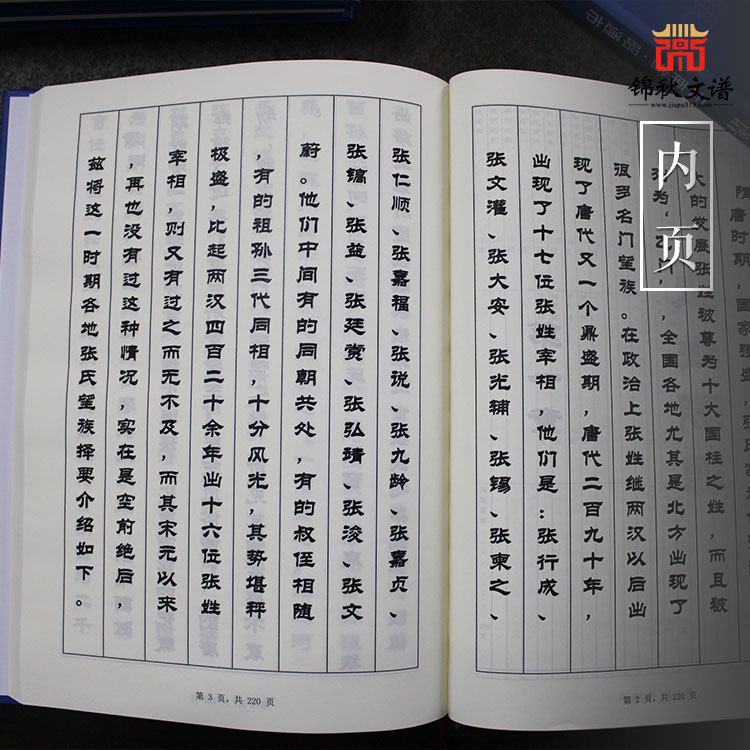 锦秋文谱
www.jiapu315.com
内页
隋唐时期，国家
大的发展张姓被尊为十大国柱之姓，而且被
为“，全国各地尤其是北方出现了
很多名门望族。在政治上张姓继两汉以后出
现了唐代又一个鼎盛期，唐代二百九十年，
出现了十七位张姓宰相，他们是：张行成、
张文灌、张大安、张光辅、张锡、张柬之、
第 2 页，共 220 页
张仁顺、张嘉福、张说、张九龄、张嘉贞、
张镐、张益、张廷赏、张弘靖、张浚、张文
蔚。他们中间有的同朝共处，有的叔侄相随
，有的祖孙三代同相，十分风光，其势堪称
极盛，比起两汉四百二十余年出十六位张姓
宰相，则又有过之而无不及，而其宋元以来
，再也没有过这种情况，实在是空前绝后，
兹将这一时期各地张氏望族择要介绍如下。
第 3 页，共 220 页